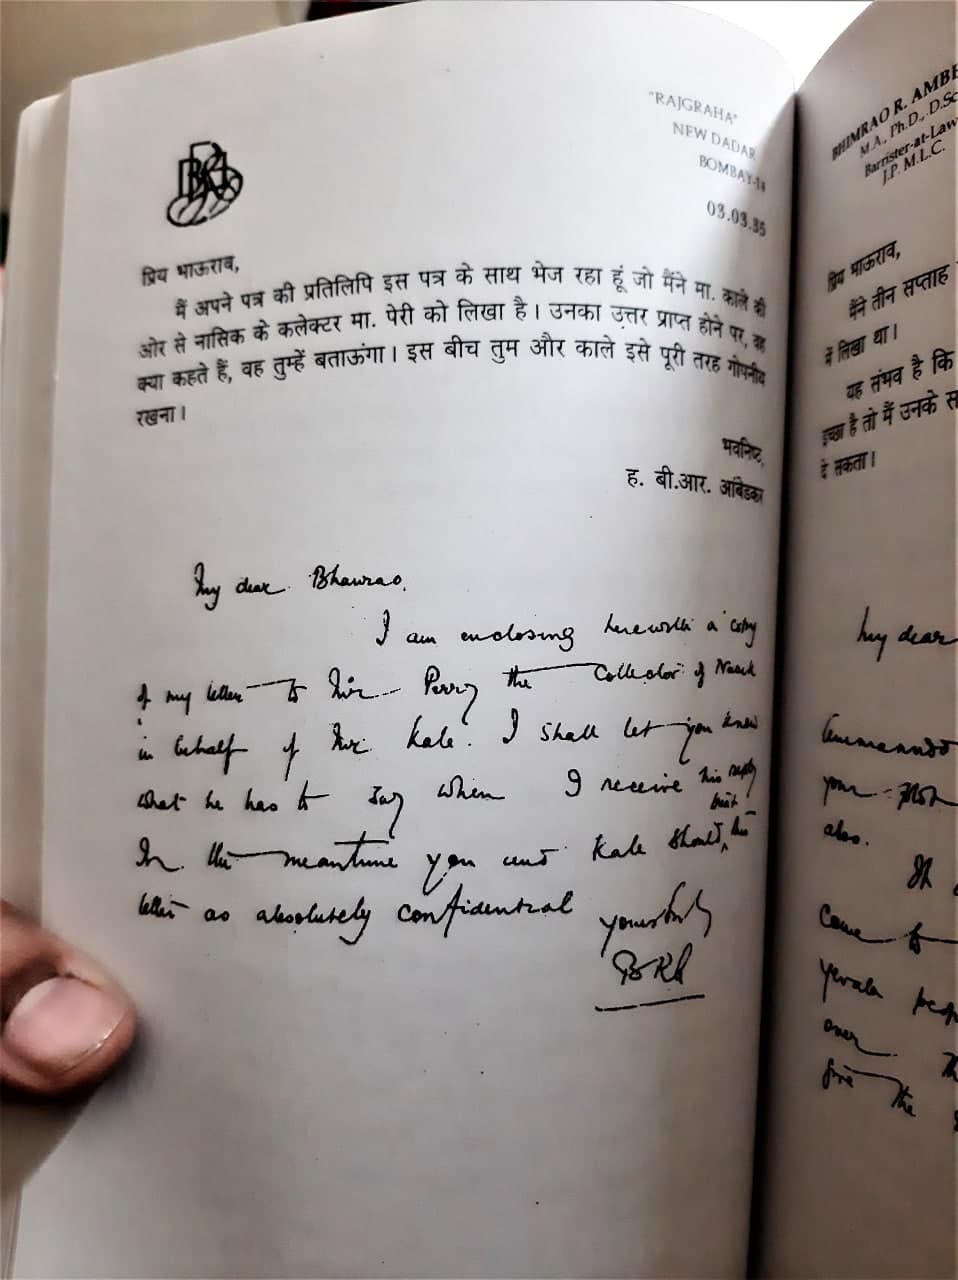 "RAJGRAHA"
NEW DADAR
BOMBAY-14
03.03.35
प्रिय भाऊराव,
मैं अपने पत्र की प्रतिलिपि इस पत्र के साथ भेज रहा हूं जो मैंने मा. काले की
ओर से नासिक के कलेक्टर मा. पेरी को लिखा है। उनका उत्तर प्राप्त होने पर, वह
क्या कहते हैं, वह तुम्हें बताऊंगा। इस बीच तुम और काले इसे पूरी तरह गोपनीय
रखना।
भवनिष्ट,
ह. बी.आर. आंबेडकर
My dear Bhaurao,
I am enclosing herewith a copy
of my letter to Mr. Perry the Collector of Nasik
in behalf of Mr. Kale. I shall let you know
what he has to say when I receive his reply
In the meantime you and Kale should, treat this
letter as absolutely confidential
yours truly
BRA
BHIMRAO R. AMBE
M.A., Ph.D., D.Sc
Barrister-at-Law
J.P. M.L.C.
प्रिय भाऊराव,
मैंने तीन सप्ताह
में लिखा था।
यह संभव है कि
इच्छा है तो मैं उनके स
दे सकता।
My dear
your
also.
If
Come to
Yevala
over
give the